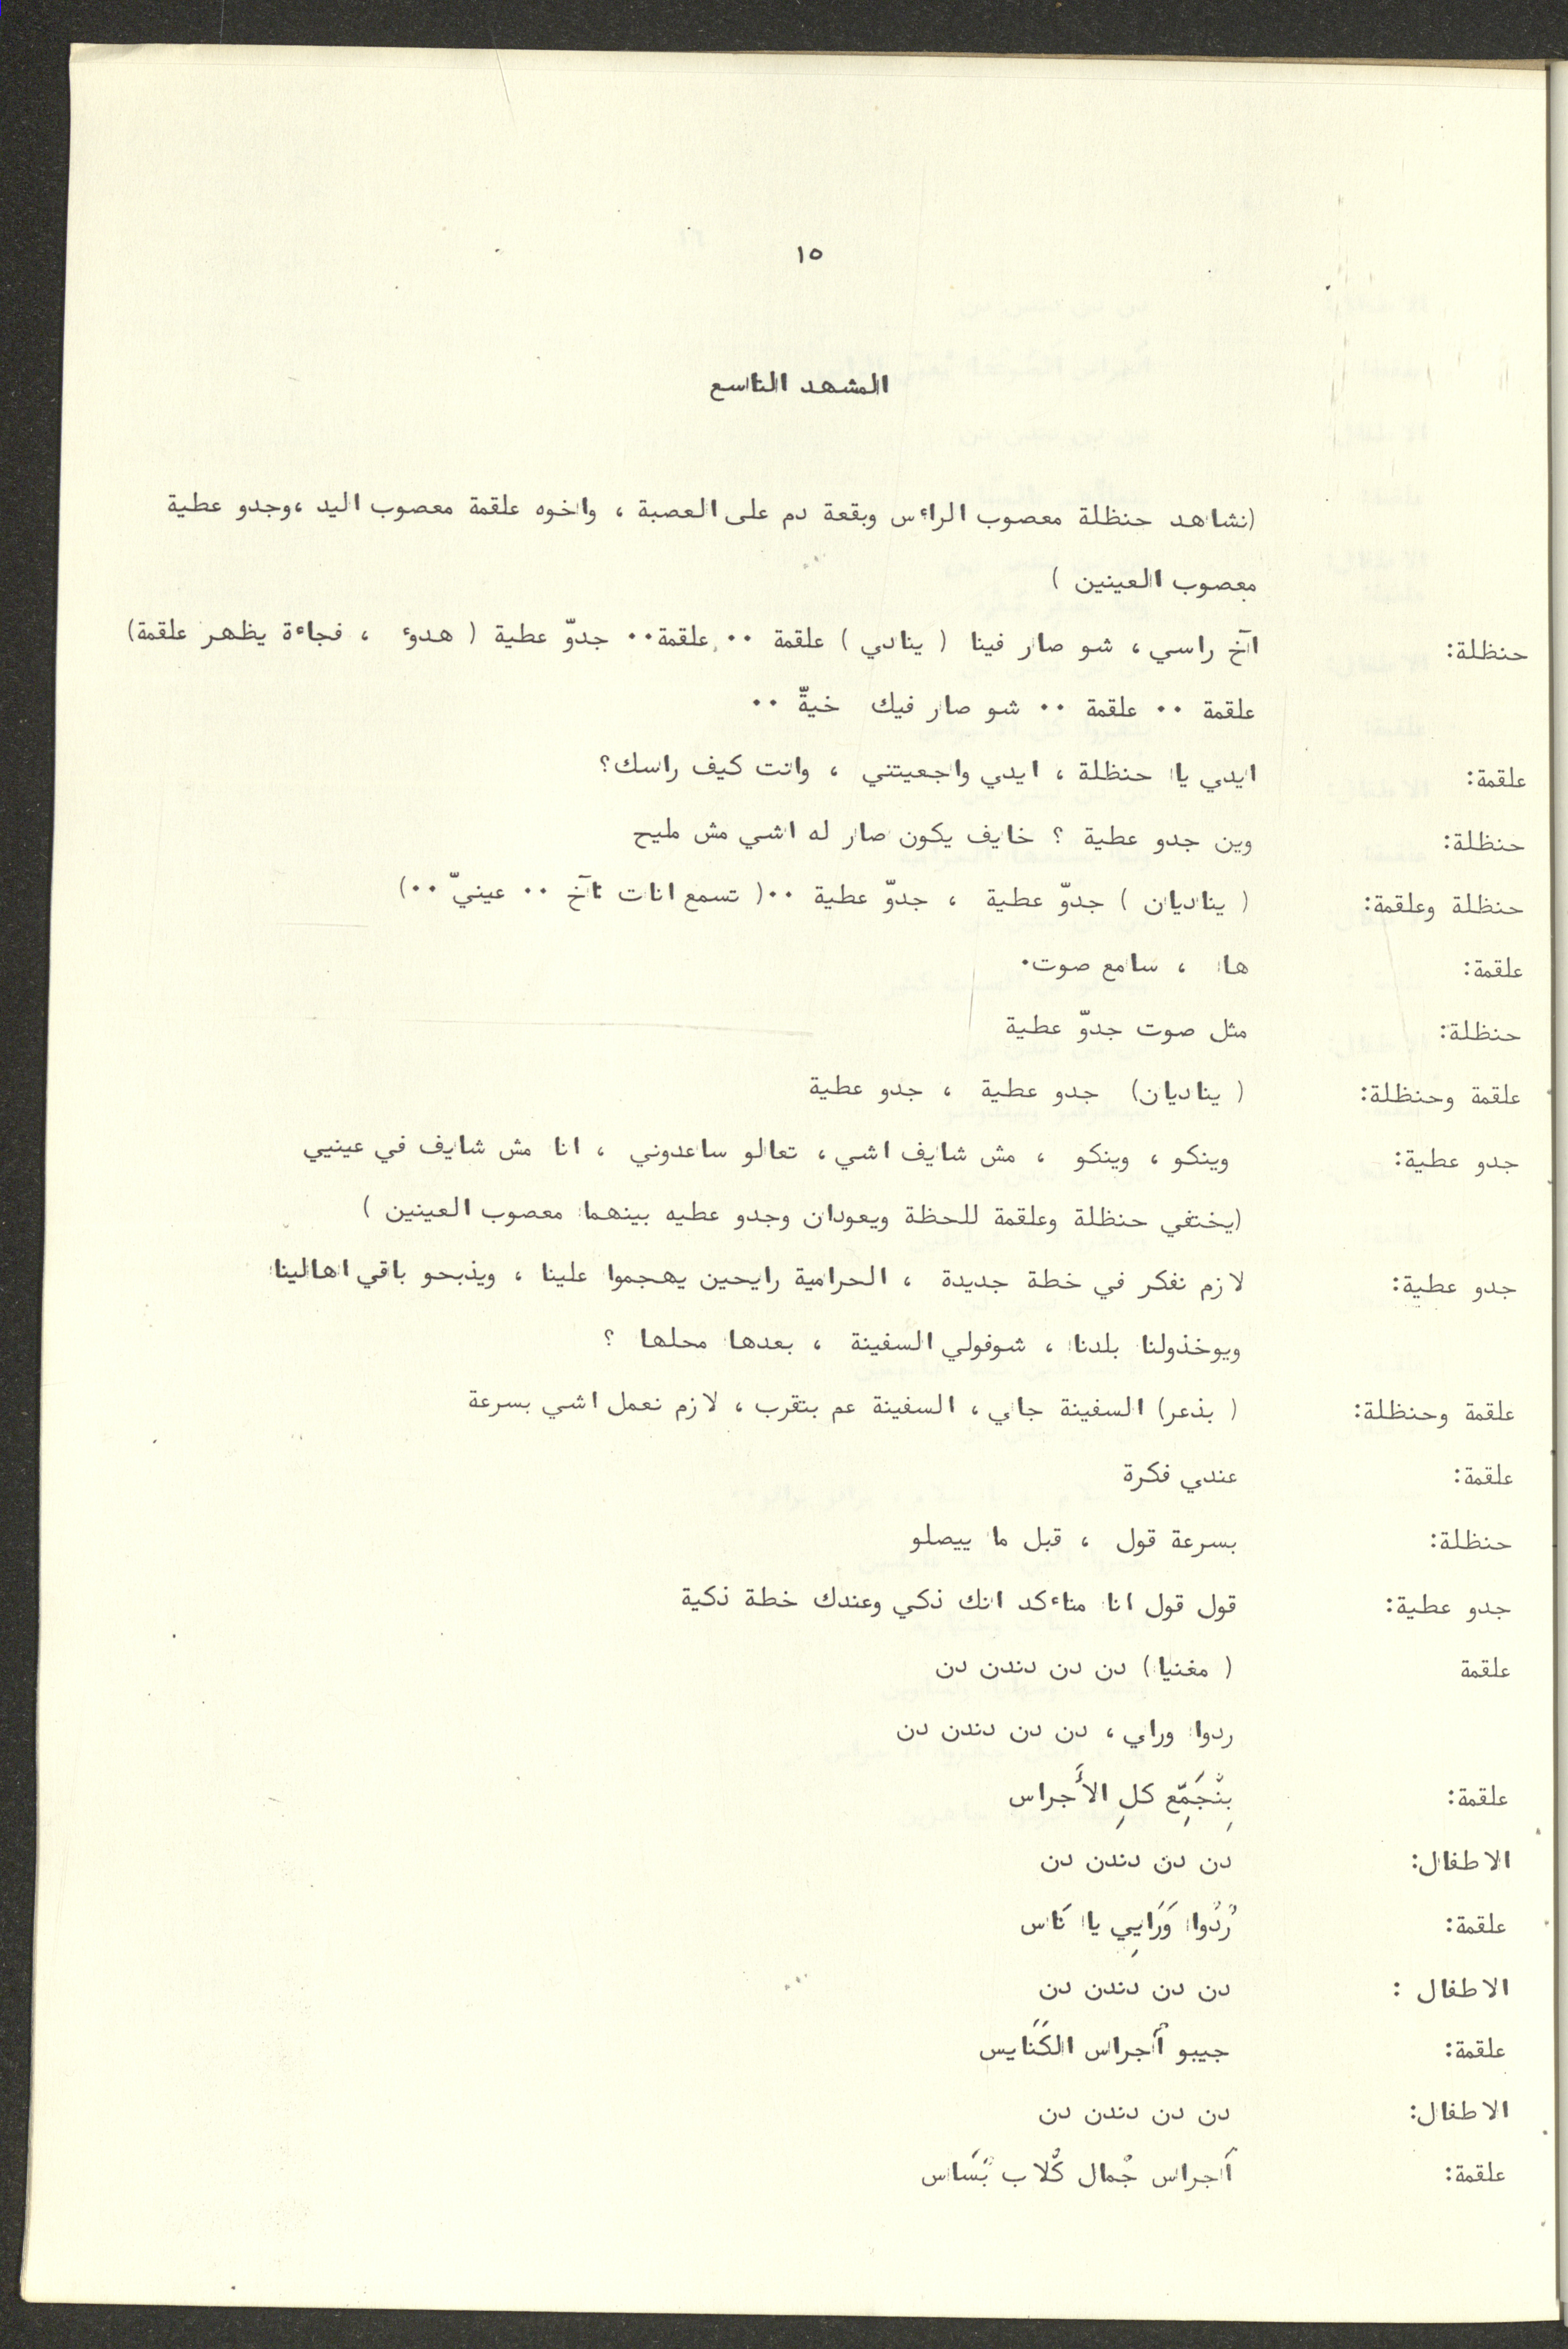 ١٥
المشهد التاسع
(نشاهد حنظلة معصوب الراءس وبقعة دم على العصبة ، واخوه علقمة معصوب اليد ،وجدو عطية
معصوب العينين )
حنظلة: آخ راسي ، شو صار فينا ( ينادي ) علقمة ٠٠ علقمة٠٠ جدوّ عطية ( هدوء ، فجاءة يظهر علقمة)
علقمة ٠٠ علقمة ٠٠ شو صار فيك خيةّ ٠٠
علقمة: ايدي يا حنظلة ، ايدي واجعيتني ، وانت كيف راسك؟
حنظلة: وين جدو عطية ؟ خايف يكون صار له اشي مش مليح
حنظلة وعلقمة: ( يناديان ) جدوّ عطية ، جدوّ عطية ٠٠( تسمع انات تآخ ٠٠ عينيّ ٠٠)
علقمة: ها ، سامع صوت٠
حنظلة: مثل صوت جدوّ عطية
علقمة وحنظلة: ( يناديان) جدو عطية ، جدو عطية
جدو عطية: وينكو ، وينكو ، مش شايف اشي ، تعالو ساعدوني ، انا مش شايف في عينيي
(يختفي حنظلة وعلقمة للحظة ويعودان وجدو عطيه بينهما معصوب العينين )
جدو عطية: لازم نفكر في خطة جديدة ، الحرامية رايحين يهجموا علينا ، ويذبحو باقي اهالينا
ويوخذولنا بلدنا ، شوفولي السفينة ، بعدها محلها ؟
علقمة وحنظلة: ( بذعر) السفينة جاي ، السفينة عم بتقرب ، لازم نعمل اشي بسرعة
علقمة: عندي فكرة
حنظلة: بسرعة قول ، قبل ما ييصلو
جدو عطية: قول قول انا متاءكد انك ذكي وعندك خطة ذكية
علقمة ( مغنيا) دن دن دندن دن
ردوا وراي ، دن دن دندن دن
علقمة: بِنْجَمِّع كلِ الأَجراس
الاطفال: دن دن دندن دن
علقمة: رُدُوا وَرَايِي يا نَاس
الاطفال : دن دن دندن دن
علقمة: جيبو أَجراس الكَنَايس
الاطفال: دن دن دندن دن
علقمة: أَجراس جْمال كْلاب بْسَاس